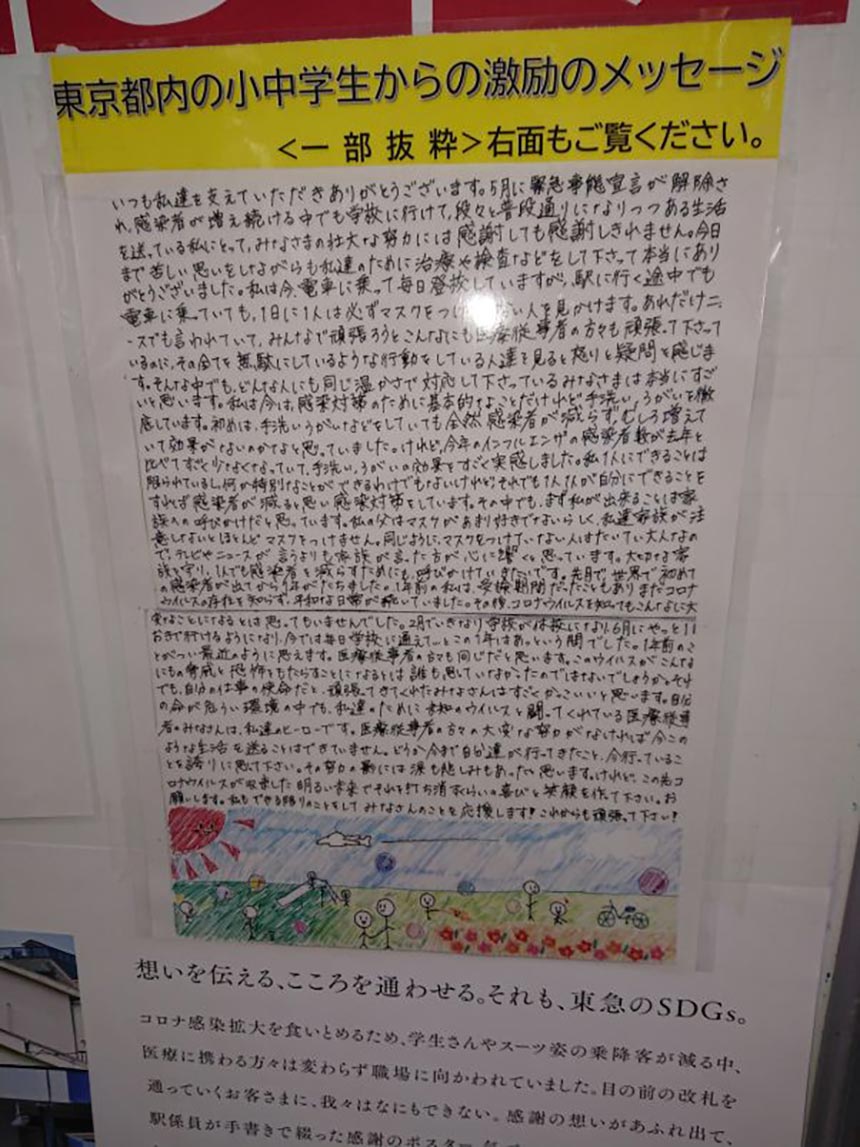 東京都内の小中学生からの激励のメッセージ
<一部抜粋>右面もご覧ください。
いつも私達を支えていただきありがとうございます。5月に緊急事態宣言が解除さ
れ、感染者が増え続ける中でも学校に行けて、段々と普段通りになりつつある生活
を送っている私にとって、みなさまの壮大な努力には感謝しても感謝しきれません。今日
まで苦しい思いをしながらも私達のために治療や検査などをして下さって本当にあり
がとうございました。私は今、電車に乗って毎日登校していますが、駅に行く途中でも
電車に乗っていても、1日に1人は必ずマスクをつけ ない人を見かけます。あれだけニュ
ースでも言われていて、みんなで頑張ろうとこんなにも医療従事者の方々も頑張って下さって
いるのに、その全てを無駄にしているような行動をしている人達を見ると怒りと疑問を感じま
す。そんな中でも、どんな人にも同じ温かさで対応して下さっているみなさまは本当にすご
いと思います。私は今は、感染対策のために基本的なことだけれど手洗い、うがいを徹
底しています。初めは、手洗いうがいなどをしていても全然感染者が減らず、むしろ増えて
いて効果がないのかなと思っていました。けれど、今年のインフルエンザの感染者数が去年と
比べてすごく少なくなっていて、手洗い、うがいの効果をすごく実感しました。私1人にできることは
限られているし、何か特別なことができるわけでもないけれど、それでも1人1人が自分にできることを
すれば感染者が減ると思い感染対策をしています。その中でも、まず私が出来ることは家
族への呼びかけだと思っています。私の父はマスクがあまり好きでないらしく、私達家族が注
意しないとほとんどマスクをつけません。同じように、マスクをつけていない人はだいたい大人なの
で、テレビやニュースが言うよりも家族が言った方が心に響くと思っています。大切な家
族を守り、1人でも感染者を減らすためにも、呼びかけていきたいです。先月で、世界で初めて
の感染者が出てから1年がたちました。1年前の私は、受験期間だったこともありまだコロナ
ウイルスの存在を知らず、平和な日常が続いていました。その後、コロナウイルスを知ってもこんなに大
変なことになるとは思ってもいませんでした。2月でいきなり学校が休校になり、6月にやっと1日
おきで行けるようになり、今では毎日学校に通えて…とこの1年はあっという間でした。1年前のこ
とがつい最近のように思えます。医療従事者の方々も同じだと思います。このウイルスがこんな
にもの脅威と恐怖をもたらすことになるとは誰も思していなかったのではないでしょうか。それ
でも、自分の仕事の使命だと、頑張ってきてくれたみなさんはすごくかっこいいと思います。自分
の命が危うい環境の中でも、私達のために未知のウイルスと闘ってくれている医療従事
者のみなさんは、私達のヒーローです。医療従事者の方々の大変な努力がなければ今この
ような生活を送ることはできていません。どうか今まで自分達が行ってきたこと、今行っているこ
とを誇りに思って下さい。その努力の影には涙も悲しみもあったと思います。けれど、この先コ
ロナウイルスが収束した明るい未来でそれを打ち消すくらいの喜びと笑顔を作って下さい。お
願いします。私もできる限りのことをしてみなさんのことを応援します！これからも頑張って下さい！
想いを伝える、こころを通わせる。それも、東急のSDGs。
コロナ感染拡大を食いとめるため、学生さんやスーツ姿の乗降客が減る中、
医療に携わる方々は変わらず職場に向かわれていました。目の前の改札を
通っていくお客さまに、我々はなにもできない。感謝の想いがあふれ出て、
駅係員が手書きで綴った感謝のポスター